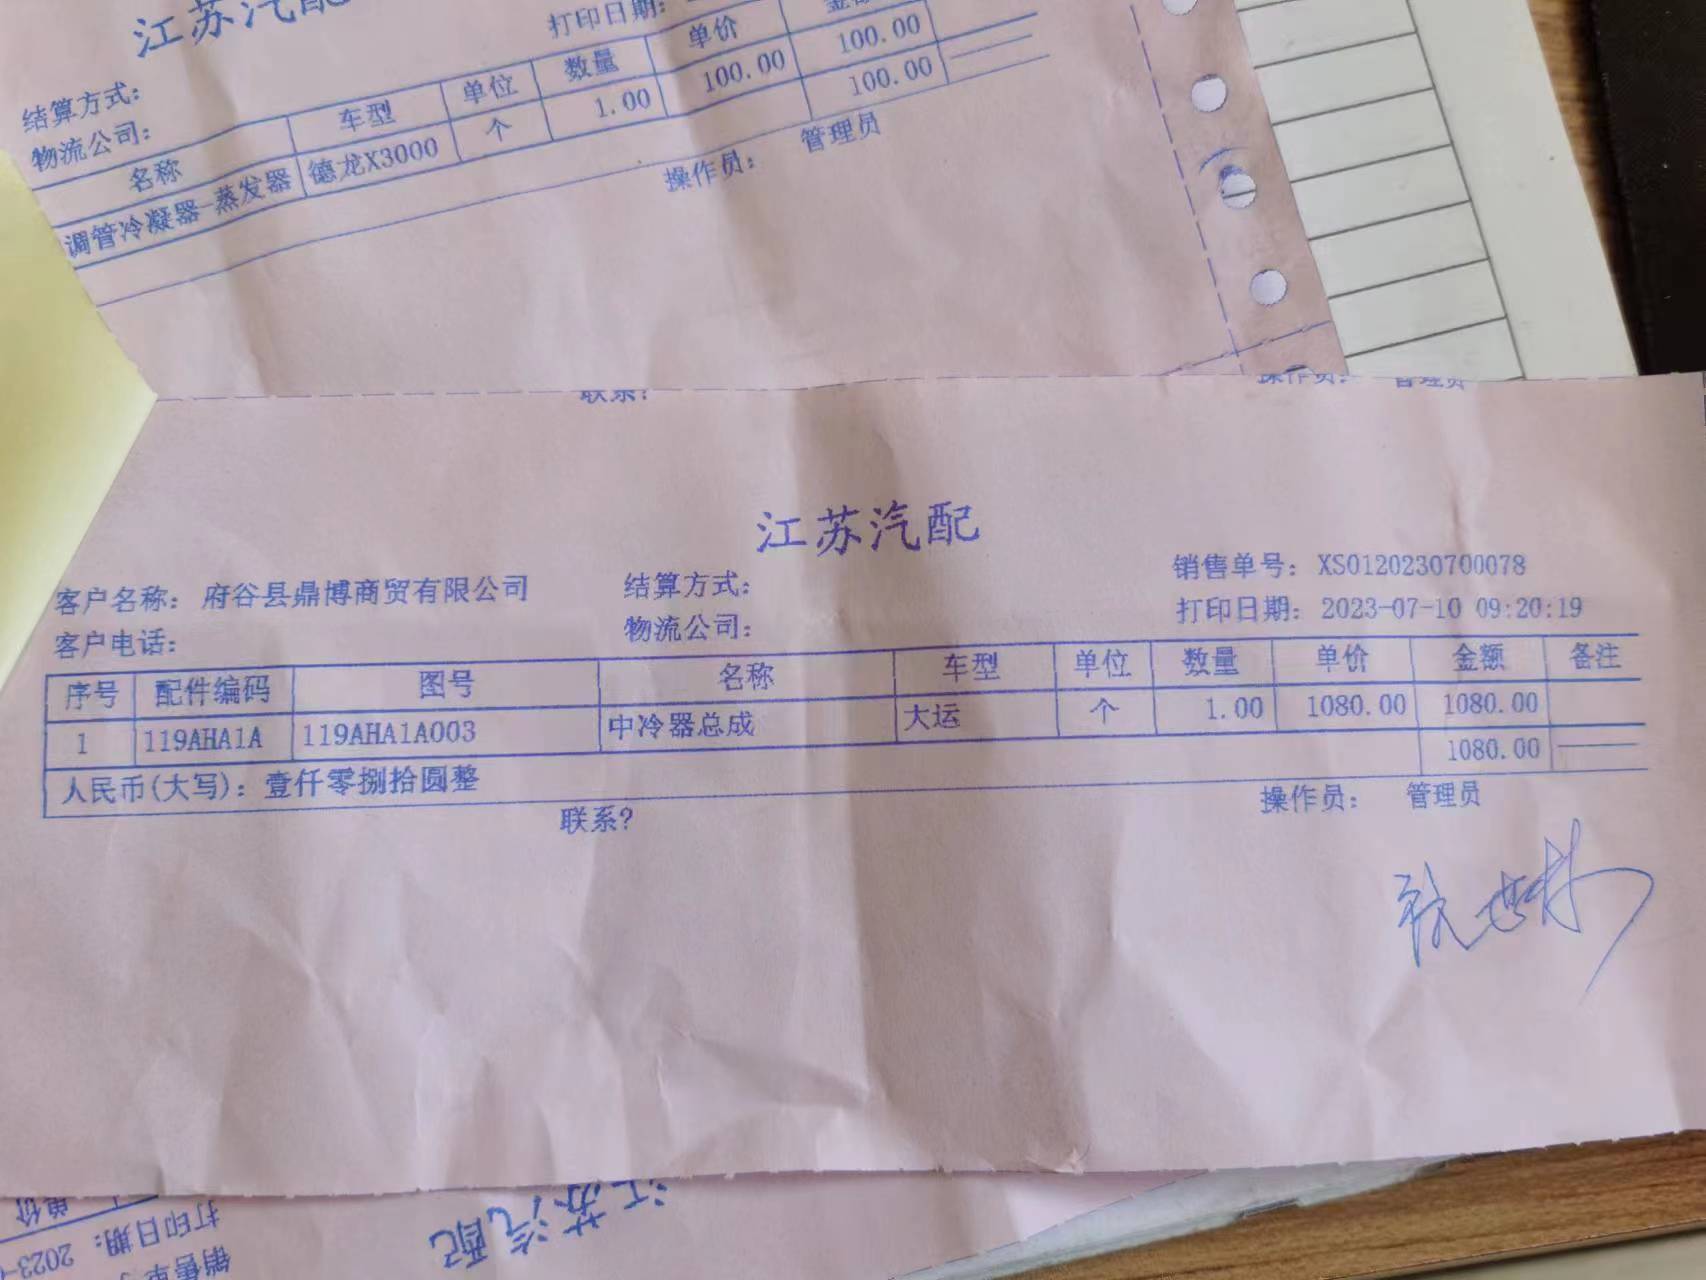 江苏汽配
打印日期:
结算方式:
物流公司:
名称 车型 单位 数量 单价 金额
调管冷凝器-蒸发器 德龙X3000 个 1.00 100.00 100.00
100.00
操作员: 管理员
联系: 操作员: 管理员
江苏汽配
客户名称: 府谷县鼎博商贸有限公司 结算方式: 销售单号: XS0120230700078
客户电话: 物流公司: 打印日期: 2023-07-10 09:20:19
序号 配件编码 图号 名称 车型 单位 数量 单价 金额 备注
1 119AHA1A 119AHA1A003 中冷器总成 大运 个 1.00 1080.00 1080.00
1080.00
人民币(大写): 壹仟零捌拾圆整
联系? 操作员: 管理员
江苏汽配
销售单
打印日期: 2023-
单价